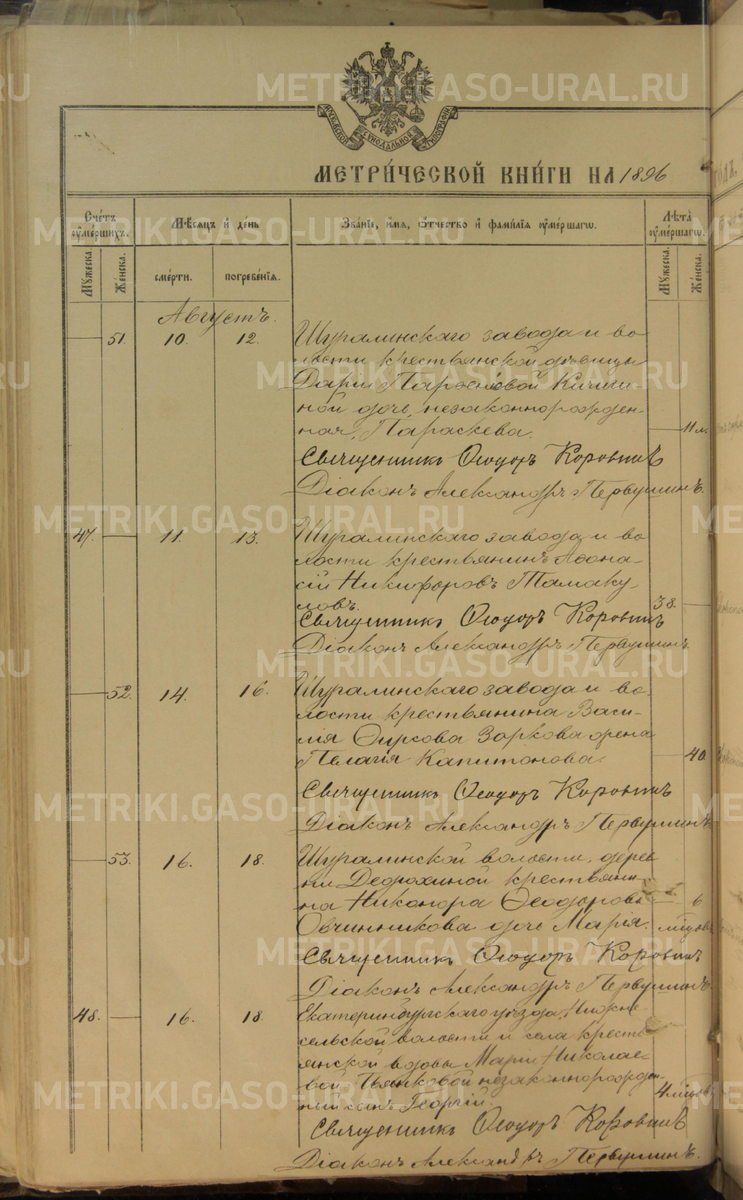 МЕТРИЧЕСКОЙ КНИГИ НА 1896
Счетъ умершихъ.
Мѣсяцъ и день
Званіе, имя, отчество и фамилія умершаго.
Лѣта умершаго.
Мужеска.
Женска.
смерти.
погребенія.
Мужеска.
Женска.
Августъ.
51. 10. 12. Шуралинскаго завода и во-
лости крестьянской дѣвицы
Даріи Парѳеновой Кичиги-
ной дочь, незаконнорожден-
ная, Параскева. 11 м.
Священникъ Ѳеодоръ Коровинъ
Діаконъ Александръ Первушинъ.
47. 11. 13. Шуралинскаго завода и во-
лости крестьянинъ Аѳана-
сій Никифоровъ Тамаку-
ловъ. 38.
Священникъ Ѳеодоръ Коровинъ
Діаконъ Александръ Первушинъ.
52. 14. 16. Шуралинскаго завода и во-
лости крестьянина Васи-
лія Ѳирсова Зоркова жена
Пелагія Капитонова. 40.
Священникъ Ѳеодоръ Коровинъ
Діаконъ Александръ Первушинъ
53. 16. 18. Шуралинской волости, дерев-
ни Ѳедюхиной крестьяни-
на Никанора Ѳеодорова 6
Овчинникова дочь Марія. мѣсцовъ
Священникъ Ѳеодоръ Коровинъ
Діаконъ Александръ Первушинъ.
48. 16. 18. Екатеринбургскаго уѣзда,
сельской волости и села кресть-
янской вдовы Маріи Николае-
вой Пьянковой незаконнорожден-
ный сынъ Георгій. 4 мѣсцовъ
Священникъ Ѳеодоръ Коровинъ
Діаконъ Александръ Первушинъ.
METRIKI.GASO-URAL.RU